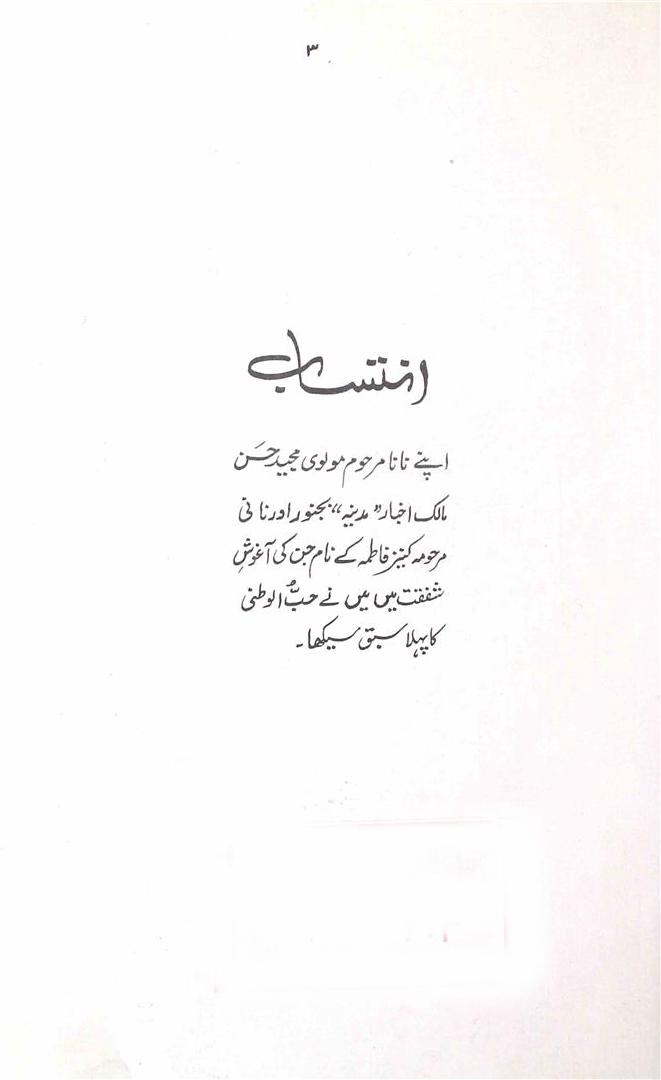 ۳
انتساب
اپنے نانا مرحوم مولوی مجید حسن
مالک اخبار "مدینہ" بجنور اور نانی
مرحومہ کنیز فاطمہ کے نام جن کی آغوشِ
شفقت میں میں نے حبُّ الوطنی
کا پہلا سبق سیکھا۔